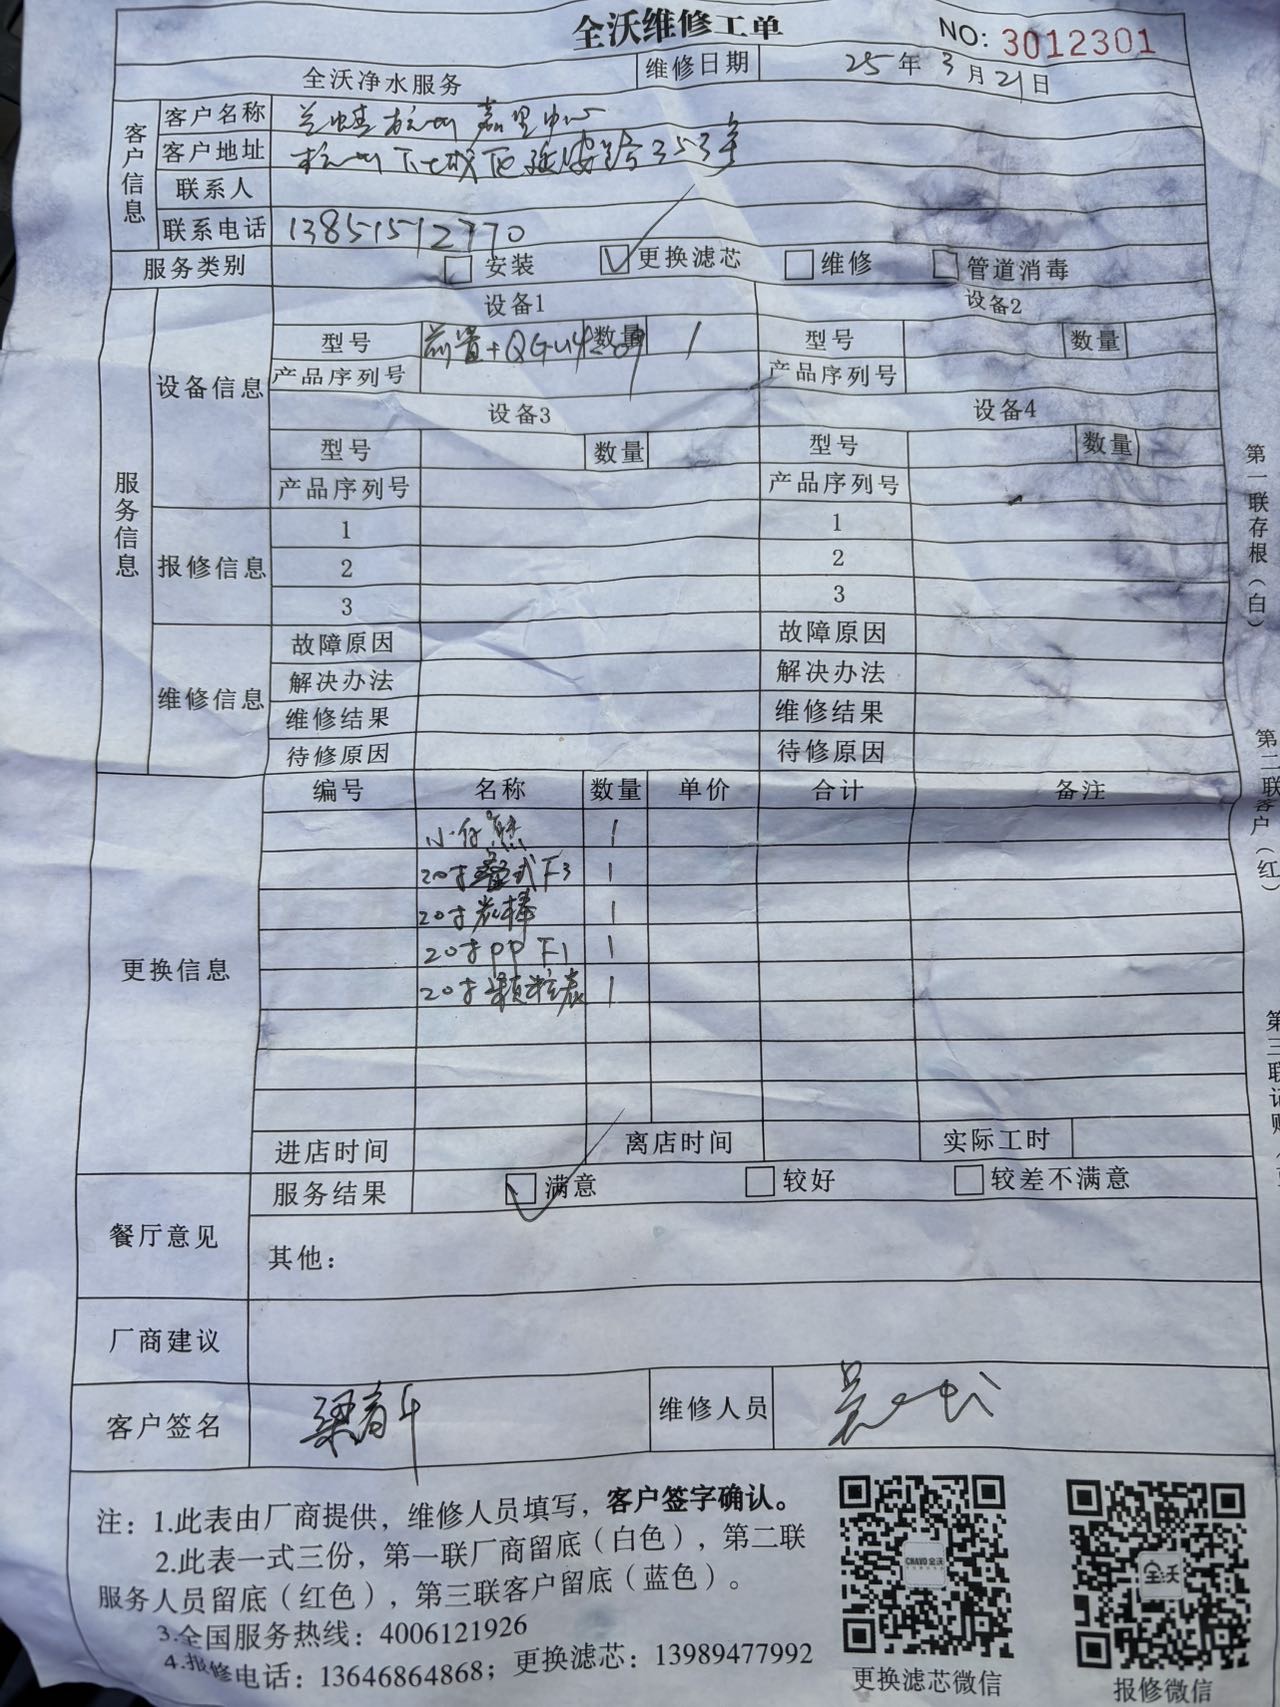 全沃维修工单
NO: 3012301
全沃净水服务 维修日期 25年3月21日
客户信息
客户名称 兰蛙杭州嘉里中心
客户地址 杭州下城区延安路353号
联系人
联系电话 13851512770
服务类别 安装 更换滤芯 维修 管道消毒
服务信息
设备信息
设备1 设备2
型号 前置+QG 数量 1 型号 数量
产品序列号 产品序列号
设备3 设备4
型号 数量 型号 数量
产品序列号 产品序列号
报修信息
1 1
2 2
3 3
维修信息
故障原因 故障原因
解决办法 解决办法
维修结果 维修结果
待修原因 待修原因
更换信息
编号 名称 数量 单价 合计 备注
1
20寸 式F3 1
20寸炭棒 1
20寸PP F1 1
20寸颗粒炭 1
进店时间 离店时间 实际工时
餐厅意见
服务结果 满意 较好 较差不满意
其他：
厂商建议
客户签名 维修人员
第一联存根（白）
第二联客户（红）
第三联记账
注：1.此表由厂商提供，维修人员填写，客户签字确认。
2.此表一式三份，第一联厂商留底（白色），第二联
服务人员留底（红色），第三联客户留底（蓝色）。
3.全国服务热线：4006121926
4.报修电话：13646864868；更换滤芯：13989477992
CHAVO 全沃
更换滤芯微信
全沃
报修微信